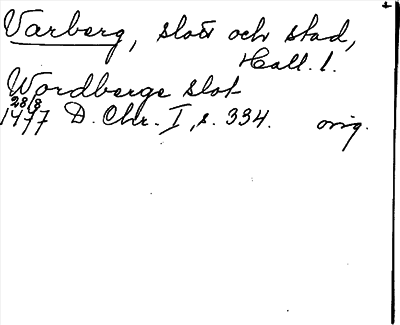 Varberg, slott och stad,
Hall. l.
Wordberge slot
28/8
1477 D. Chr. I, s. 334. orig.